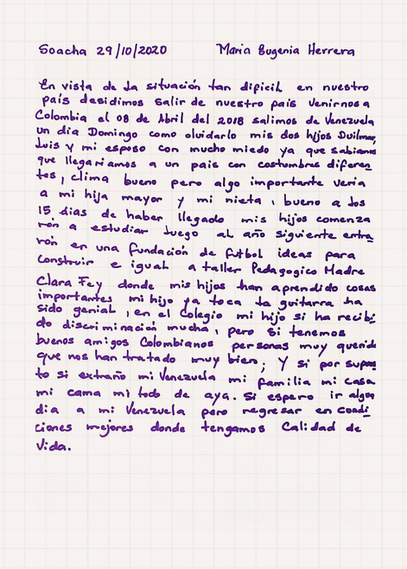 Soacha 29/10/2020 Maria Eugenia Herrera
En vista de la situación tan dificil en nuestro
país desidimos salir de nuestro país venirnos a
Colombia el 08 de Abril del 2018 salimos de Venezuela
un día Domingo como olvidarlo mis dos hijos Duilmar,
Luis y mi esposo con mucho miedo ya que sabiamos
que llegariamos a un pais con costumbres diferen
tes, clima bueno pero algo importante veria
a mi hija mayor y mi nieta, bueno a los
15 dias de haber llegado mis hijos comenza
rón a estudiar luego al año siguiente entra
rón en una fundación de futbol ideas para
construir e igual a taller Pedagogico Madre
Clara Fey donde mis hijos han aprendido cosas
importantes mi hijo ya toca la guitarra ha
sido genial, en el Colegio mi hijo si ha recibi
do discriminación mucha, pero si tenemos
buenos amigos Colombianos personas muy querida
que nos han tratado muy bien; Y si por supues
to si extraño mi Venezuela mi familia mi casa
mi cama mi todo de aya. Si espero ir algún
dia a mi Venezuela pero regresar en condi
ciones mejores donde tengamos Calidad de
Vida.